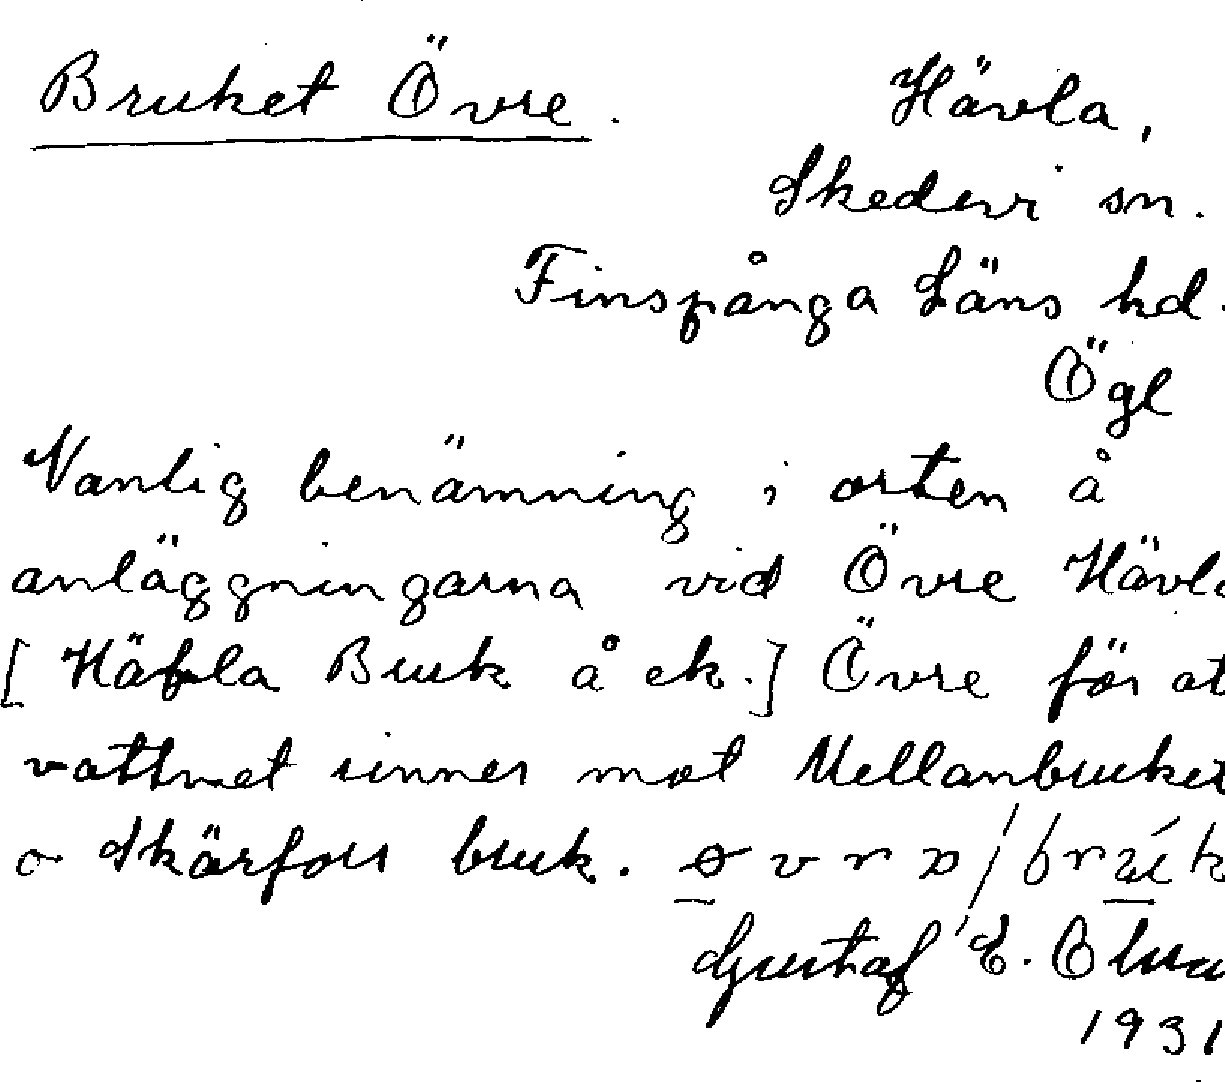 Bruket Övre. Hävla,
Skedevi sn.
Finspånga Läns hd.
Ögl
Vanlig benämning i orten å
anläggningarna vid Övre Hävla
[Häfla Bruk å ek.] Övre för at
vattnet rinner mot Mellanbruket
o Skärfors bruk.
Gustaf E.
1931